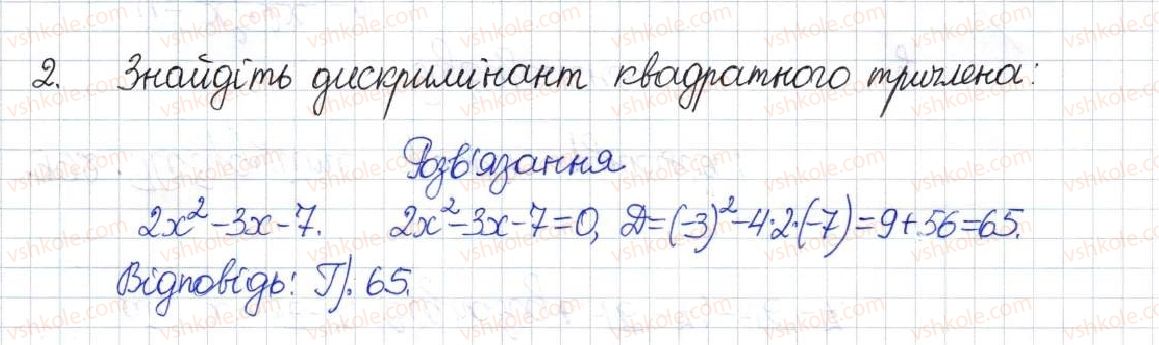 2. Знайдіть дискримінант квадратного тричлена:
Розв'язання
2x²-3x-7. 2x²-3x-7=0, Д=(-3)²-4·2·(-7)=9+56=65.
Відповідь: Г). 65.